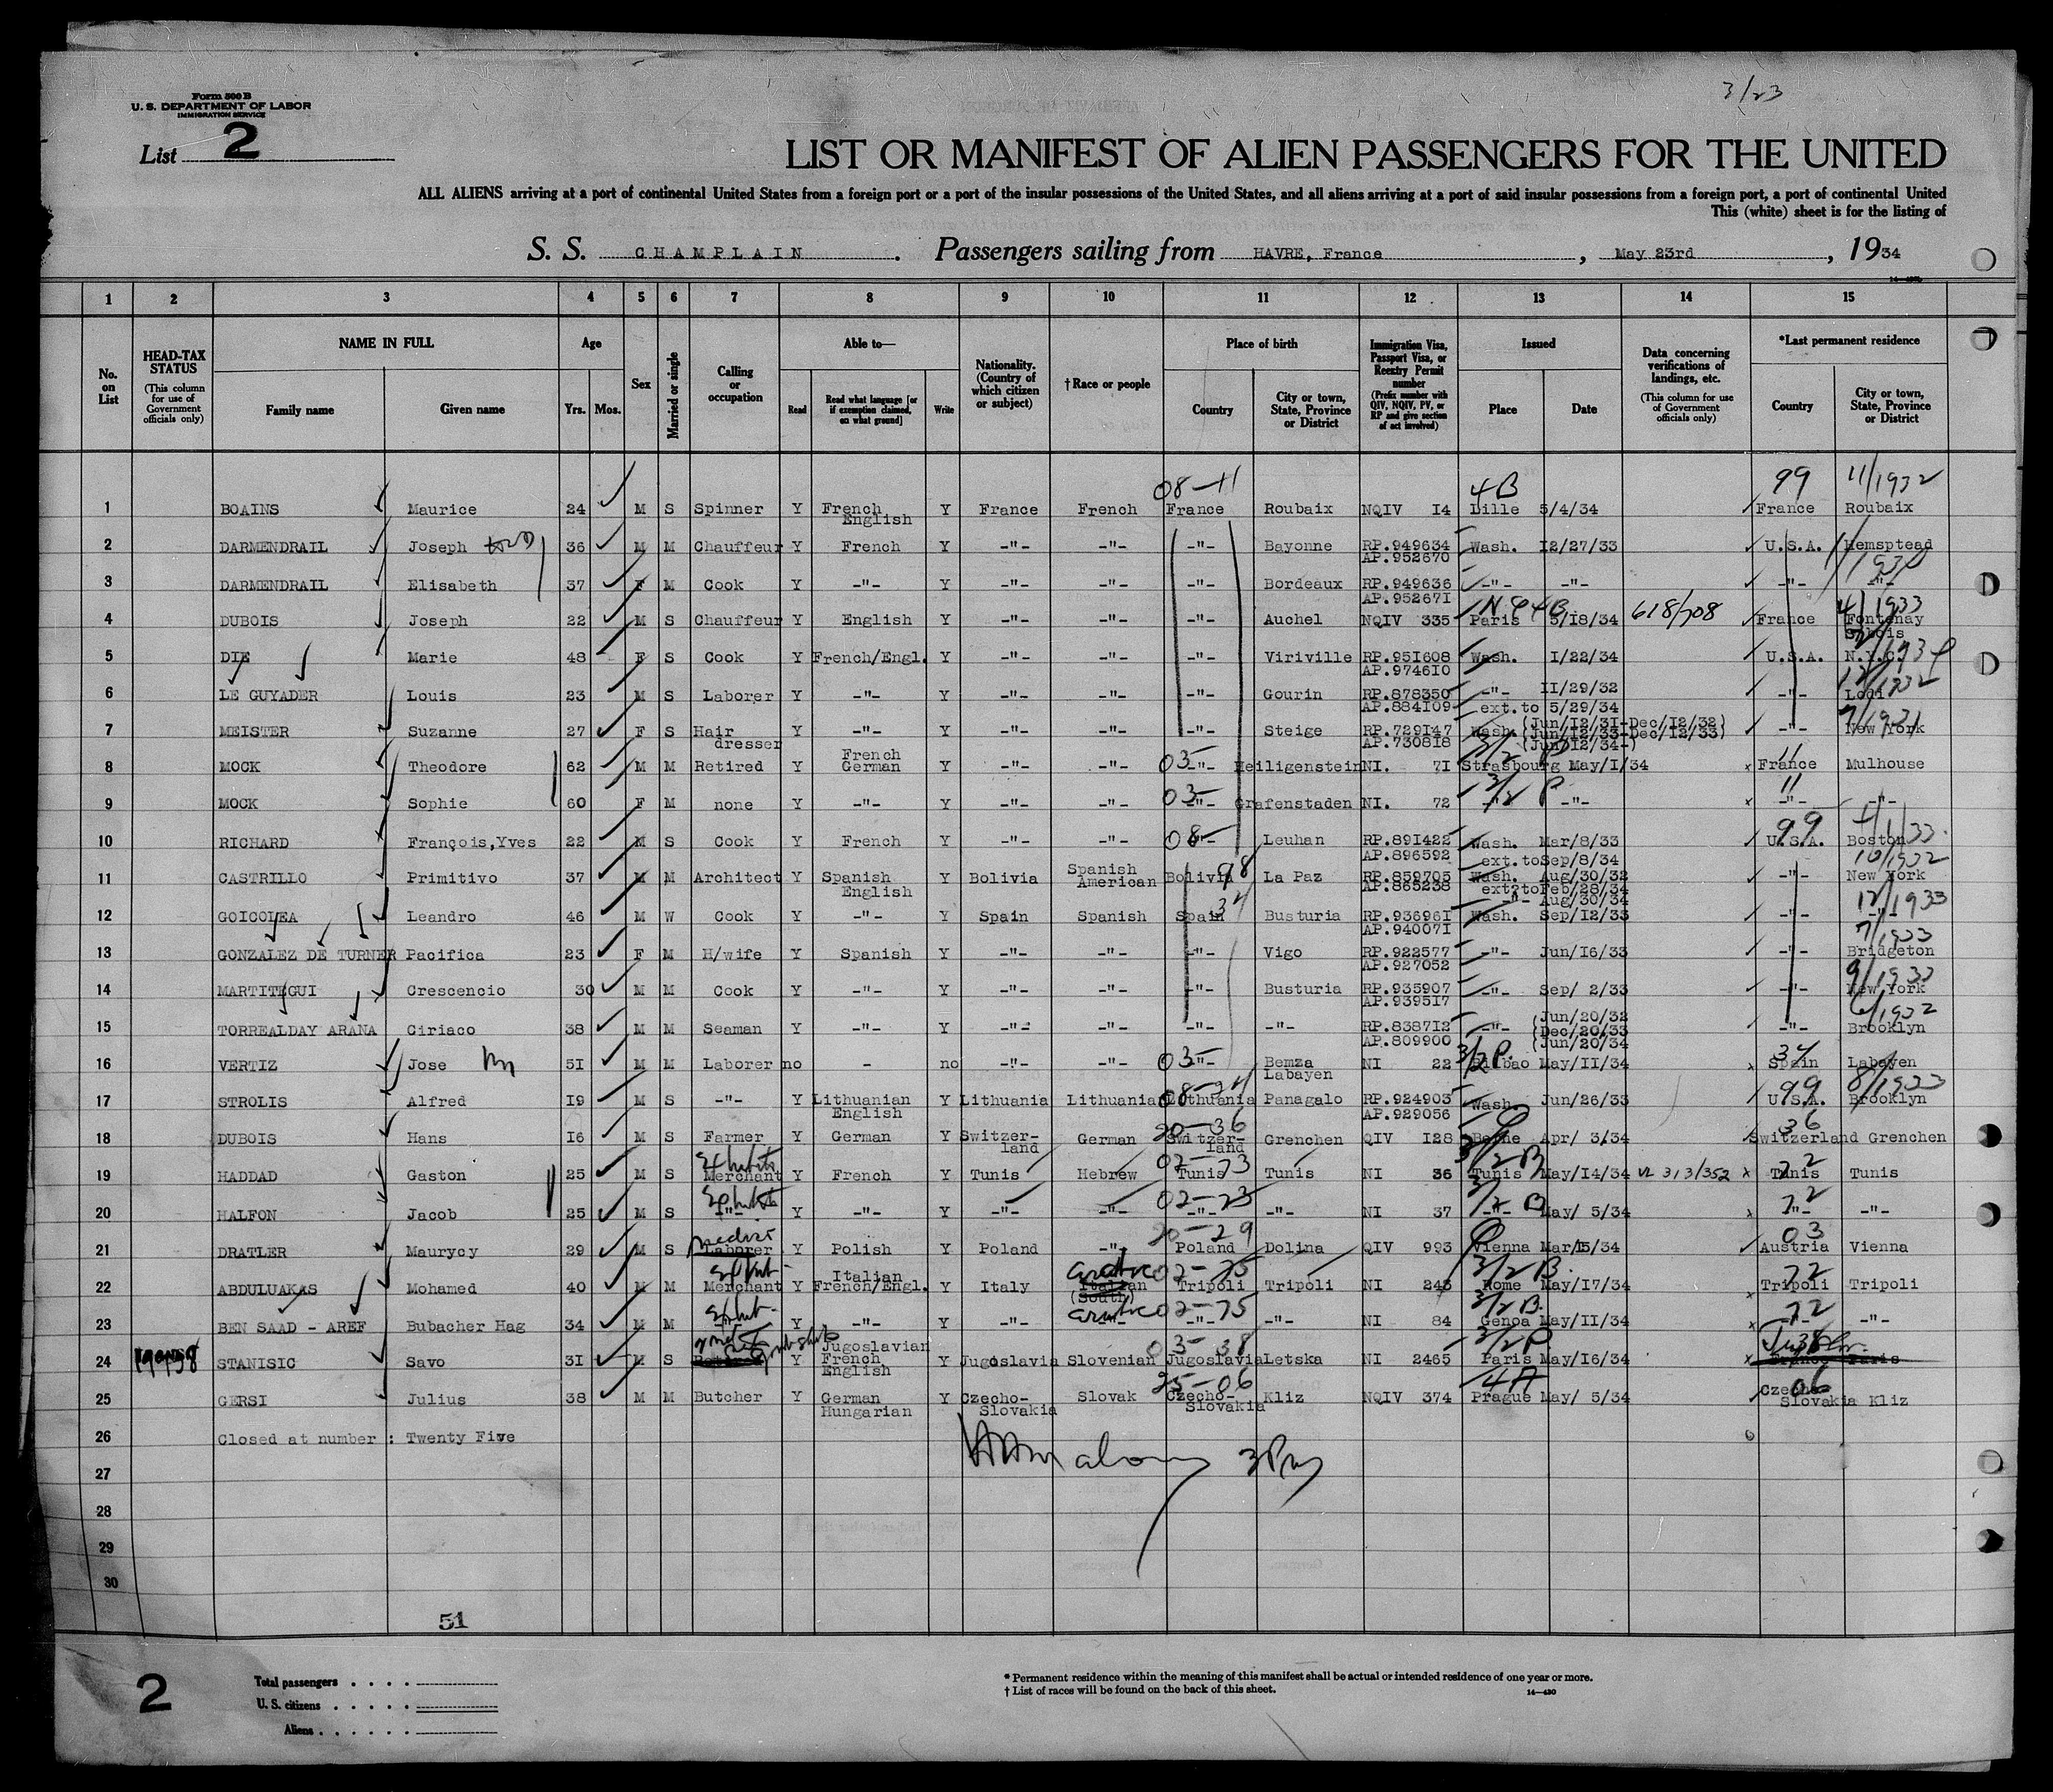 3/23
Form 500 B
U. S. DEPARTMENT OF LABOR
IMMIGRATION SERVICE
List 2
LIST OR MANIFEST OF ALIEN PASSENGERS FOR THE UNITED
ALL ALIENS arriving at a port of continental United States from a foreign port or a port of the insular possessions of the United States, and all aliens arriving at a port of said insular possessions from a foreign port, a port of continental United
This (white) sheet is for the listing of
S. S. CHAMPLAIN . Passengers sailing from HAVRE, France , May 23rd , 1934
1 2 3 4 5 6 7 8 9 10 11 12 13 14 15
No. on List
HEAD-TAX STATUS (This column for use of Government officials only)
NAME IN FULL Family name Given name
Age Yrs. Mos.
Sex
Married or single
Calling or occupation
Able to— Read Read what language [or if exemption claimed, on what ground] Write
Nationality. (Country of which citizen or subject)
† Race or people
Place of birth Country City or town, State, Province or District
Immigration Visa, Passport Visa, or Reentry Permit number (Prefix number with QIV, NQIV, PV, or RP and give section of act involved)
Issued Place Date
Data concerning verifications of landings, etc. (This column for use of Government officials only)
*Last permanent residence Country City or town, State, Province or District
08-11 4B 99 11/1932
1 BOAINS Maurice 24 M S Spinner Y French English Y France French France Roubaix NQIV I4 Lille 5/4/34 France Roubaix
2 DARMENDRAIL Joseph 36 M M Chauffeur Y French Y -"- -"- -"- Bayonne RP.949634 AP.952670 Wash. I2/27/33 U.S.A. Hemsptead
3 DARMENDRAIL Elisabeth 37 F M Cook Y -"- Y -"- -"- -"- Bordeaux RP.949636 AP.95267I -"- -"- -"- -"-
4 DUBOIS Joseph 22 M S Chauffeur Y English Y -"- -"- -"- Auchel NQIV 335 Paris 5/I8/34 618/708 France 4/1933 Fontenay S/Bois
5 DIE Marie 48 F S Cook Y French/Engl. Y -"- -"- -"- Viriville RP.95I608 AP.9746I0 Wash. I/22/34 U.S.A. N.Y.C.
6 LE GUYADER Louis 23 M S Laborer Y -"- Y -"- -"- -"- Gourin RP.878350 AP.884I09 -"- II/29/32 ext.to 5/29/34 -"- Lodi
7 MEISTER Suzanne 27 F S Hair dresser Y -"- Y -"- -"- -"- Steige RP.729I47 AP.7308I8 Wash. (Jun/I2/3I-Dec/I2/32) (Jun/I2/33-Dec/I2/33) (Jun/I2/34-) -"- 7/1931 New York
8 MOCK Theodore 62 M M Retired Y French German Y -"- -"- 03 -"- Heiligenstein NI. 7I Strasbourg May/I/34 11 France Mulhouse
9 MOCK Sophie 60 F M none Y -"- Y -"- -"- 03 -"- Grafenstaden NI. 72 -"- -"- 11 -"- -"-
10 RICHARD François,Yves 22 M S Cook Y French Y -"- -"- 08 -"- Leuhan RP.89I422 AP.896592 Wash. Mar/8/33 ext.toSep/8/34 99 U.S.A. Boston
11 CASTRILLO Primitivo 37 M M Architect Y Spanish English Y Bolivia Spanish American Bolivia 98 La Paz RP.859705 AP.865238 Wash. Aug/30/32 ext?toFeb/28/34 -"- Aug/30/34 -"- 10/1932 New York
12 GOICOLEA Leandro 46 M W Cook Y -"- Y Spain Spanish Spain 34 Busturia RP.93696I AP.94007I Wash. Sep/I2/33 -"- 12/1933 -"-
13 GONZALEZ DE TURNER Pacifica 23 F M H/wife Y Spanish Y -"- -"- -"- Vigo RP.922577 AP.927052 -"- Jun/I6/33 -"- 7/1933 Bridgeton
14 MARTITEGUI Crescencio 30 M M Cook Y -"- Y -"- -"- -"- Busturia RP.935907 AP.9395I7 -"- Sep/ 2/33 -"- 9/1933 New York
15 TORREALDAY ARANA Ciriaco 38 M M Seaman Y -"- Y -"- -"- -"- -"- RP.8387I2 AP.809900 -"- (Jun/20/32 (Dec/20/33 (Jun/20/34 -"- 6/1932 Brooklyn
16 VERTIZ Jose 5I M M Laborer no - no -"- -"- 03 -"- Bemza Labayen NI 22 Bilbao May/II/34 34 Spain Labayen
17 STROLIS Alfred I9 M S -"- Y Lithuanian English Y Lithuania Lithuanian Lithuania Panagalo RP.924903 AP.929056 Wash. Jun/26/33 99 U.S.A. 8/1933 Brooklyn
18 DUBOIS Hans I6 M S Farmer Y German Y Switzer-land German 20-36 Switzer-land Grenchen QIV I28 Berne Apr/ 3/34 36 Switzerland Grenchen
19 HADDAD Gaston 25 M S Merchant Y French Y Tunis Hebrew 02-73 Tunis Tunis NI 36 3/2 B Tunis May/I4/34 VL 313/352 72 Tunis Tunis
20 HALFON Jacob 25 M S -"- Y -"- Y -"- -"- 02-73 -"- -"- NI 37 3/2 B -"- May/ 5/34 72 -"- -"-
21 DRATLER Maurycy 29 M S Laborer Y Polish Y Poland -"- 20-29 Poland Dolina QIV 993 Vienna Mar/I5/34 03 Austria Vienna
22 ABDULUAKAS Mohamed 40 M M Merchant Y Italian French/Engl. Y Italy Italian (South) 02-75 Tripoli Tripoli NI 243 3/2 B. Rome May/I7/34 72 Tripoli Tripoli
23 BEN SAAD - AREF Bubacher Hag 34 M M -"- Y -"- Y -"- 02-75 -"- -"- NI 84 3/2 B. Genoa May/II/34 72 -"- -"-
24 STANISIC Savo 3I M S Y Jugoslavian French English Y Jugoslavia Slovenian 03-38 Jugoslavia Letska NI 2465 3/2 P. Paris May/I6/34 France Paris
25 GERSI Julius 38 M M Butcher Y German Hungarian Y Czecho-Slovakia Slovak 25-06 Czecho-Slovakia Kliz NQIV 374 4A Prague May/ 5/34 06 Czecho-Slovakia Kliz
26 Closed at number : Twenty Five
27
28
29
30
51
2
Total passengers . . . .
U. S. citizens . . . . .
Aliens . . . . . .
* Permanent residence within the meaning of this manifest shall be actual or intended residence of one year or more.
† List of races will be found on the back of this sheet.
14—430